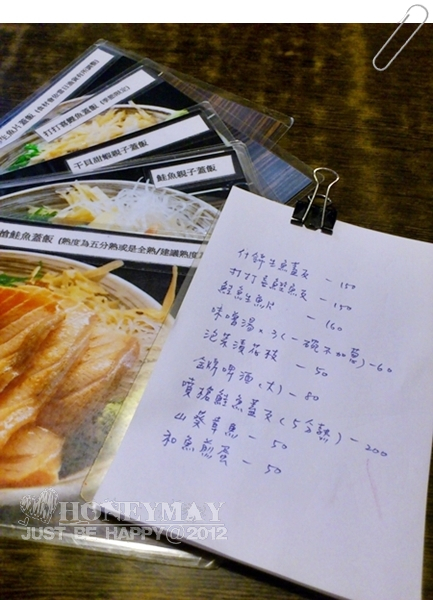 生魚片蓋飯
打打喜鰹魚蓋飯 (季節限定)
干貝甜蝦親子蓋飯
鮭魚親子蓋飯
槍鮭魚蓋飯 (熟度為五分熟或是全熟/建議熟度
什錦生魚蓋反 - 150
打打喜鰹魚反 - 150
鮭魚生魚片 - 160
味噌湯 x 3 (一碗不加蔥) - 60
泡菜漬花枝 - 50
金牌啤酒(大) - 80
噴槍鮭魚蓋反 (5分熟) - 200
山葵章魚 - 50
和魚煎蛋 - 50
HONEYMAY
JUST BE HAPPY@2012